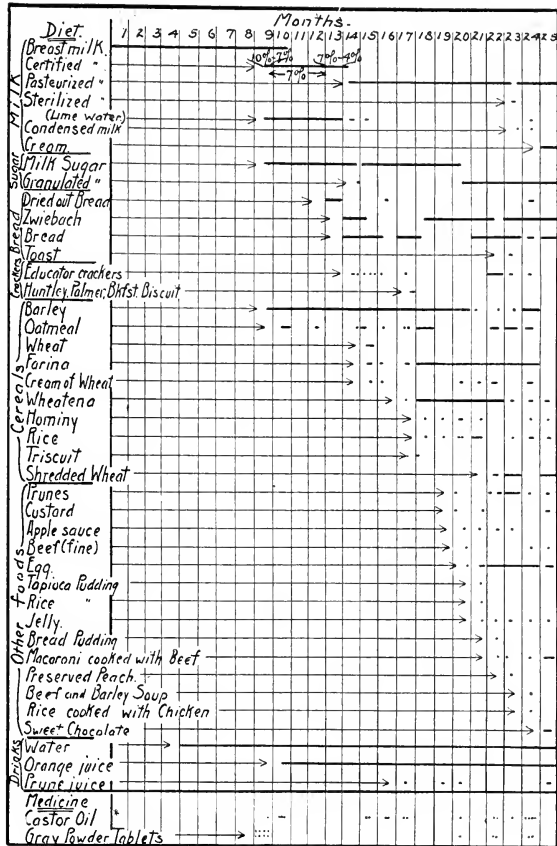 Months-
Diet. 1 2 3 4 5 6 7 8 9 10 11 12 13 14 15 16 17 18 19 20 21 22 23 24 25
Milk
Breast milk.
Certified " 10%-7% 7%-4%
Pasteurized " 7%
Sterilized "
(Lime water)
Condensed milk
Cream
Sugar
Milk Sugar
Granulated "
Bread
Dried out Bread
Zwiebach
Bread
Toast
Crackers
Educator crackers
Huntley, Palmer, Bkfst. Biscuit
Cereals
Barley
Oatmeal
Wheat
Farina
Cream of Wheat
Wheatena
Hominy
Rice
Triscuit
Shredded Wheat
Other foods
Prunes
Custard
Apple sauce
Beef (fine)
Egg.
Tapiuca Pudding
Rice "
Jelly.
Bread Pudding
Macaroni cooked with Beef
Preserved Peach.
Beef and Barley Soup
Rice cooked with Chicken
Sweet Chocolate
Drinks
Water
Orange juice
Prune juice
Medicine
Castor Oil
Gray Powder Tablets